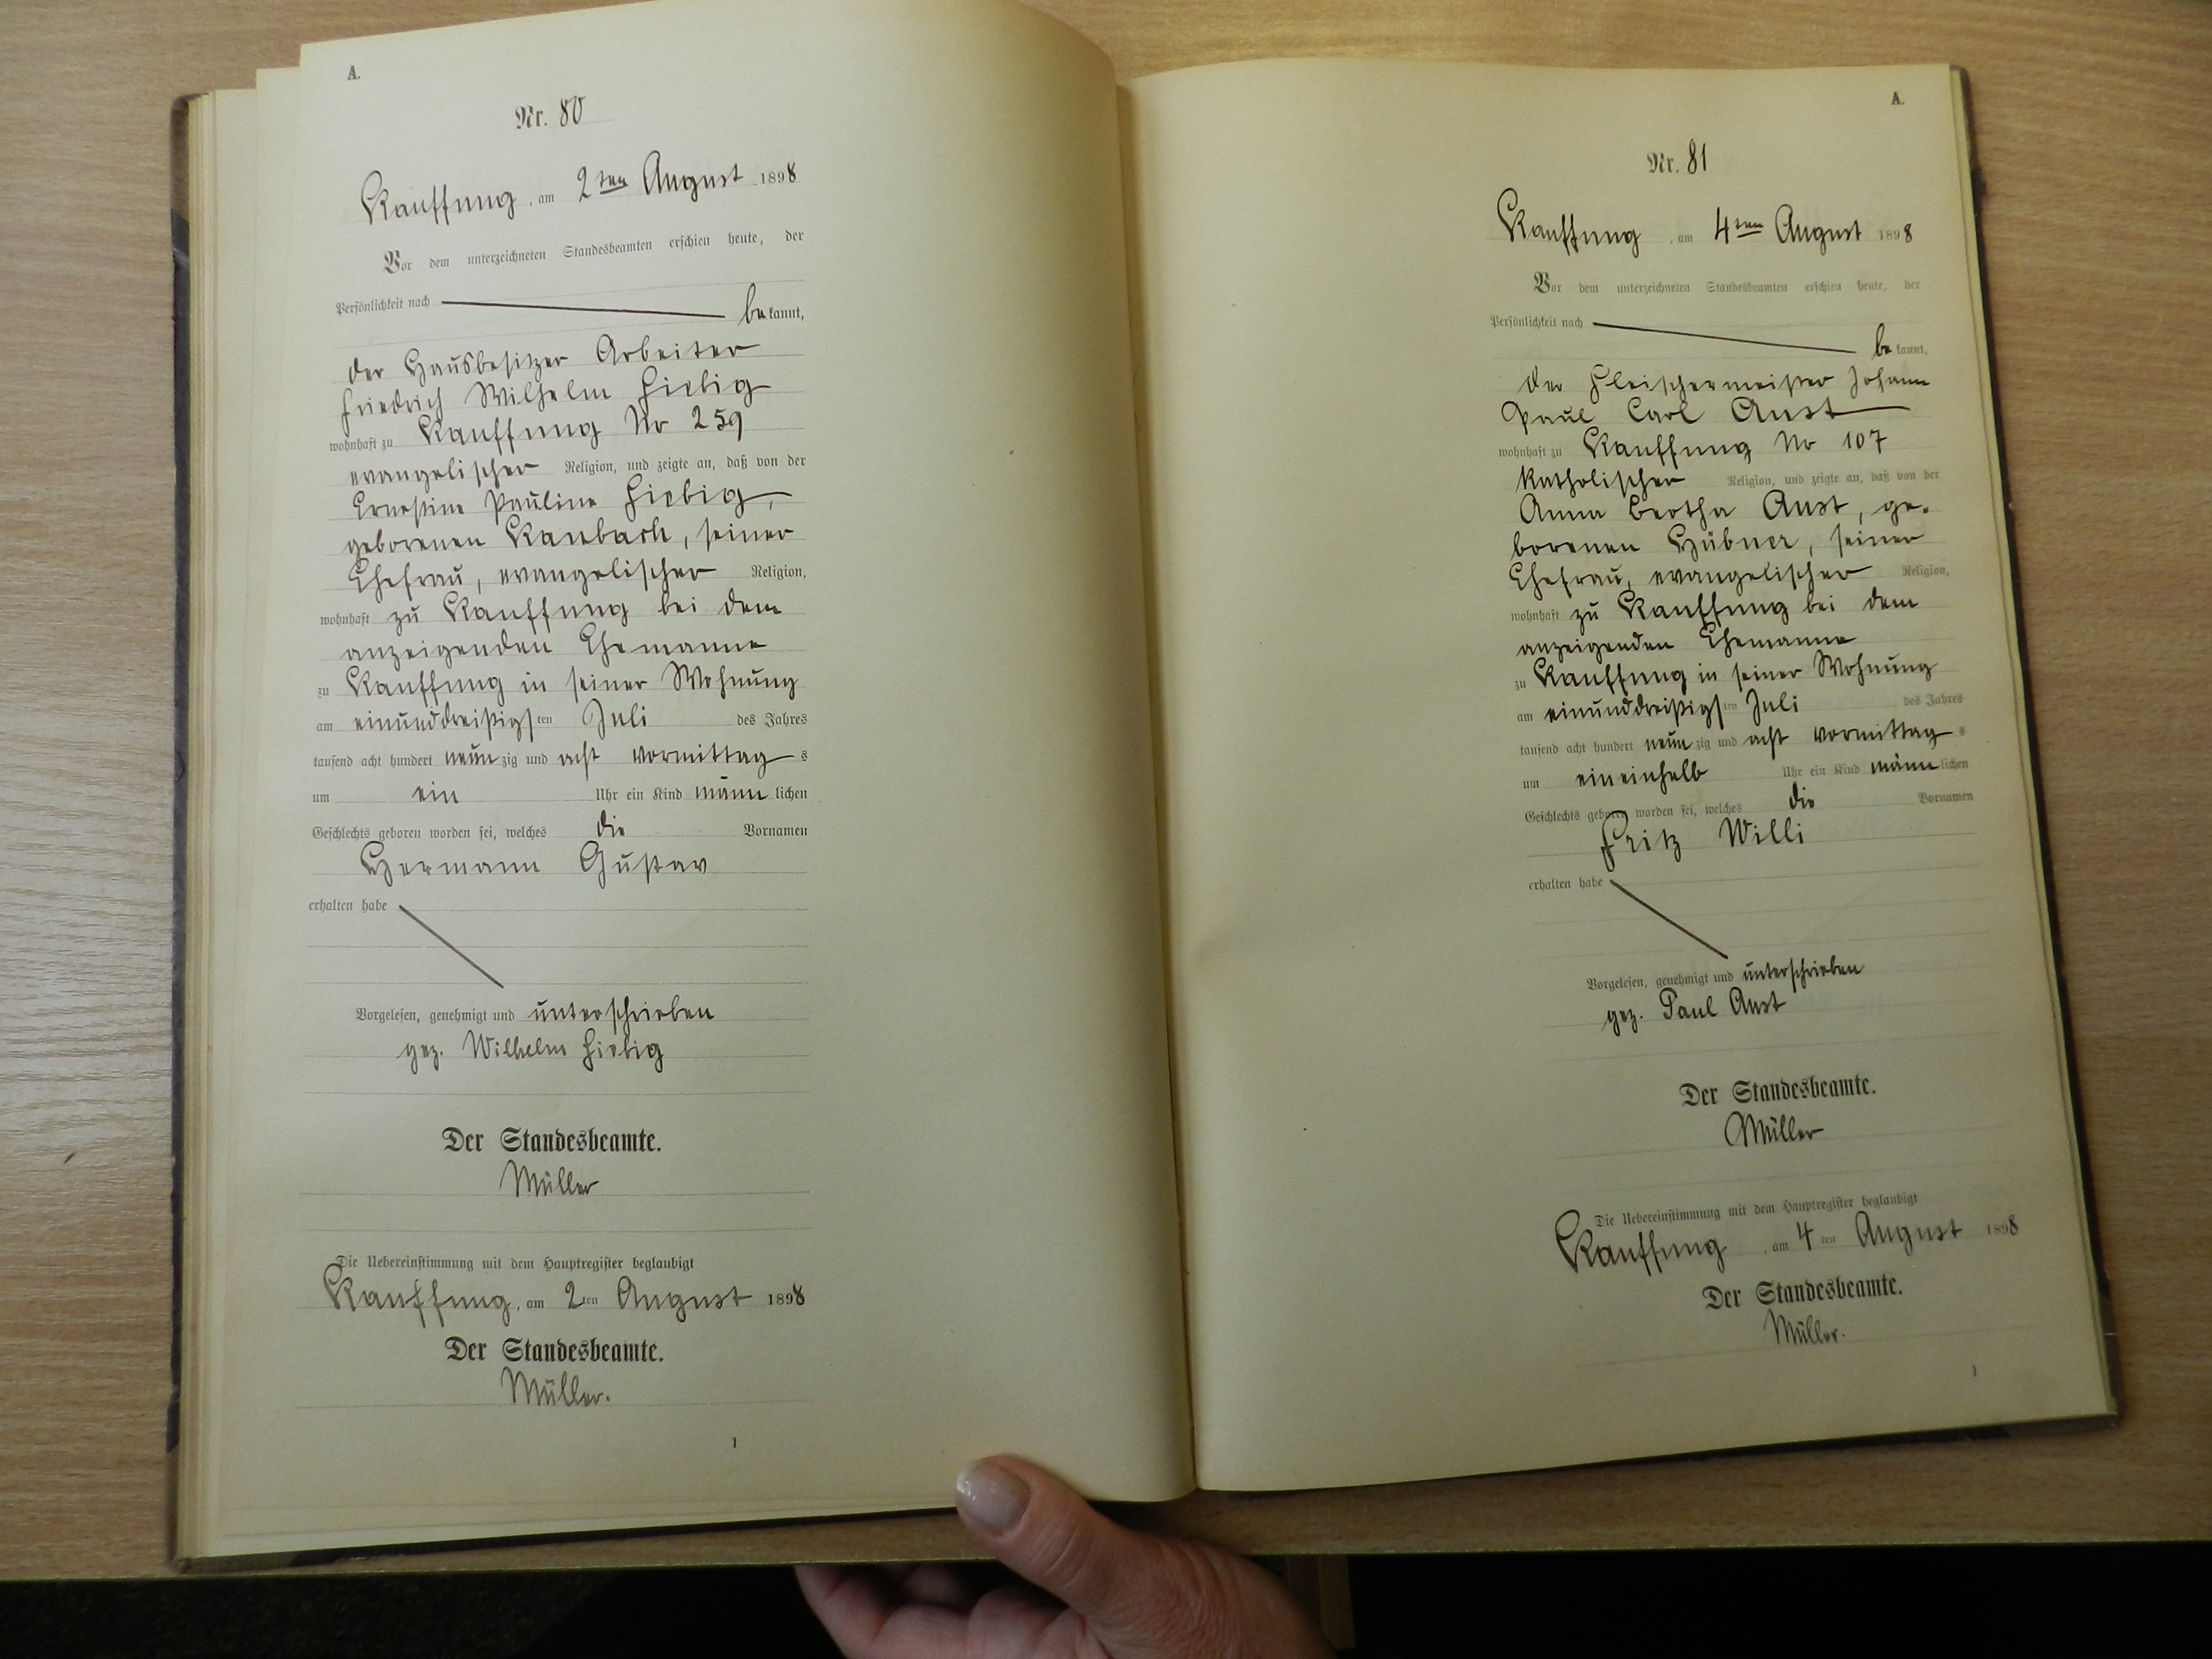 A.
Nr. 80
Kauffung, am 2ten August 1898
Vor dem unterzeichneten Standesbeamten erschien heute, der
Persönlichkeit nach
bekannt,
der Hausbesitzer Arbeiter
Friedrich Wilhelm Fiebig
wohnhaft zu Kauffung No 259
evangelischer Religion, und zeigte an, daß von der
Ernestine Pauline Fiebig,
geborenen Raubach, seiner
Ehefrau, evangelischer Religion,
wohnhaft zu Kauffung bei dem
anzeigenden Ehemanne
zu Kauffung in seiner Wohnung
am einunddreißigsten Juli des Jahres
tausend acht hundert neunzig und acht vormittags
um ein Uhr ein Kind männlichen
Geschlechts geboren worden sei, welches die Vornamen
Hermann Gustav
erhalten habe
Vorgelesen, genehmigt und unterschrieben
gez. Wilhelm Fiebig
Der Standesbeamte.
Müller
Die Uebereinstimmung mit dem Hauptregister beglaubigt
Kauffung, am 2ten August 1898
Der Standesbeamte.
Müller.
1
A.
Nr. 81
Kauffung, am 4ten August 1898
Vor dem unterzeichneten Standesbeamten erschien heute, der
Persönlichkeit nach
bekannt,
der Fleischermeister Johann
Paul Carl Aust
wohnhaft zu Kauffung No 107
katholischer Religion, und zeigte an, daß von der
Anna Bertha Aust, ge-
borenen Hübner, seiner
Ehefrau, evangelischer Religion,
wohnhaft zu Kauffung bei dem
anzeigenden Ehemanne
zu Kauffung in seiner Wohnung
am einunddreißigsten Juli des Jahres
tausend acht hundert neunzig und acht vormittags
um eineinhalb Uhr ein Kind männlichen
Geschlechts geboren worden sei, welches die Vornamen
Fritz Willi
erhalten habe
Vorgelesen, genehmigt und unterschrieben
gez. Paul Aust
Der Standesbeamte.
Müller
Die Uebereinstimmung mit dem Hauptregister beglaubigt
Kauffung, am 4ten August 1898
Der Standesbeamte.
Müller.
1